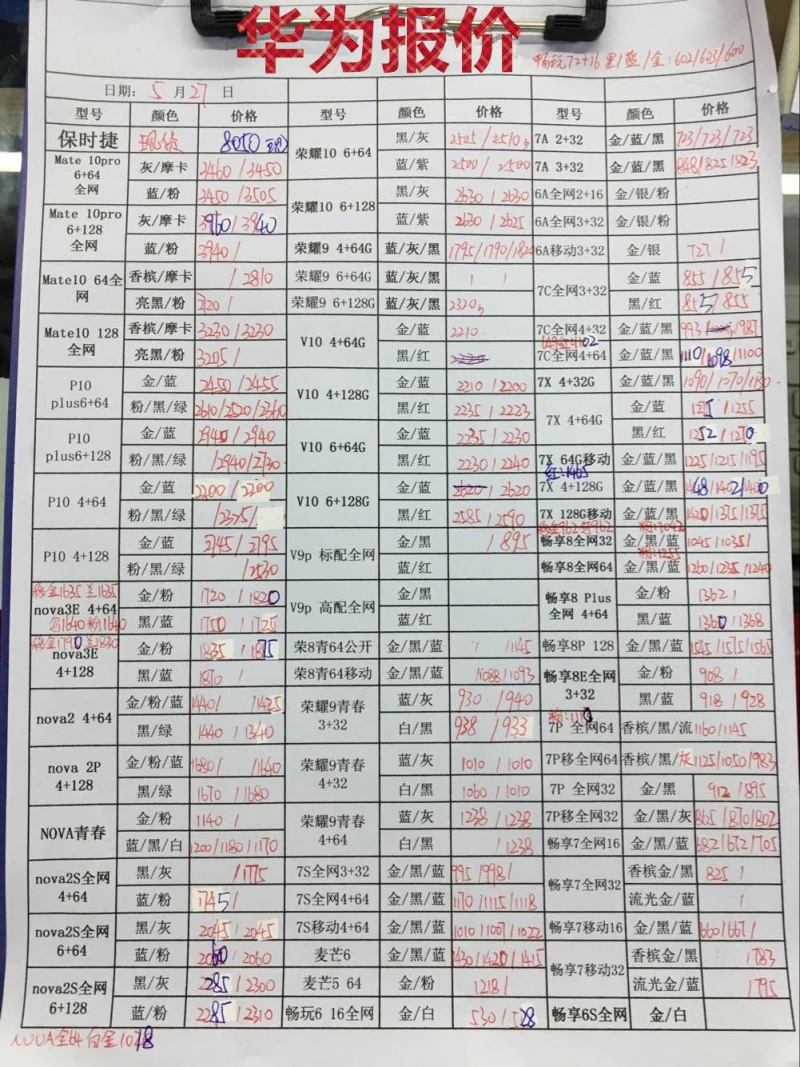 华为报价
畅玩72+16 黑/蓝/金:602/623/600
日期: 5 月 27 日
型号 颜色 价格 型号 颜色 价格 型号 颜色 价格
保时捷 现货 8050
Mate 10pro 6+64 全网 灰/摩卡 3460/3450
蓝/粉 3450/3505
Mate 10pro 6+128 全网 灰/摩卡 3960/3940
蓝/粉 3940/
Mate10 64全网 香槟/摩卡 /2810
亮黑/粉
Mate10 128 全网 香槟/摩卡 3230/3230
亮黑/粉 3205/
P10 plus6+64 金/蓝 2450/2455
粉/黑/绿 2610/2520/2360
P10 plus6+128 金/蓝 2940/2940
粉/黑/绿 /2940/2730
P10 4+64 金/蓝 2200/2200
粉/黑/绿 /2375/
P10 4+128 金/蓝 2745/2795
粉/黑/绿 /2530
nova3E 4+64 金/粉 1720/1820
黑/蓝 1750/1725
nova3E 4+128 金/粉 1835/1875
黑/蓝 1870/
nova2 4+64 金/粉/蓝 1440/ /1435
黑/绿 1440/1340
nova 2P 4+128 金/粉/蓝 1680/ /1640
黑/绿 1670/1680
NOVA青春 金/粉 1140/
蓝/黑/白 1200/1180/1170
nova2S全网 4+64 黑/灰 /1775
蓝/粉 1745/
nova2S全网 6+64 黑/灰 2045/2045
蓝/粉 2060/2060
nova2S全网 6+128 黑/灰 2285/2300
蓝/粉 2285/2310
荣耀10 6+64 黑/灰 2505/2510
蓝/紫 2500/2500
荣耀10 6+128 黑/灰 2630/2630
蓝/紫 2630/2625
荣耀9 4+64G 蓝/灰/黑 1795/1790/1820
荣耀9 6+64G 蓝/灰/黑 / /
荣耀9 6+128G 蓝/灰/黑 2320
V10 4+64G 金/蓝 2210
黑/红
V10 4+128G 金/蓝 2210/2200
黑/红 2235/2223
V10 6+64G 金/蓝 2235/2230
黑/红 2230/2240
V10 6+128G 金/蓝 /2620
黑/红 2585/2590
V9p 标配全网 金/黑 /1895
蓝/红
V9p 高配全网 金/黑
蓝/红
荣8青64公开 金/黑/蓝 / /1145
荣8青64移动 金/黑/蓝 /1088/1093
荣耀9青春 3+32 蓝/灰 930/940
白/黑 938/933
荣耀9青春 4+32 蓝/灰 1010/1010
白/黑 1060/1010
荣耀9青春 4+64 蓝/灰 1238/1238
白/黑 /1238
7S全网3+32 金/黑/蓝 995/998/
7S全网4+64 金/黑/蓝 1170/1115/1118
7S移动4+64 金/黑/蓝 1010/1007/1022
麦芒6 金/黑/蓝 1430/1420/1415
麦芒5 64 金/粉 1218/
畅玩6 16全网 金/白 530/528
7A 2+32 金/蓝/黑 723/723/723
7A 3+32 金/蓝/黑 848/825/823
6A全网2+16 金/银/粉
6A全网3+32 金/银/粉
6A移动3+32 金/银 727/
7C全网3+32 金/蓝 855/855
黑/红 855/855
7C全网4+32 金/蓝/黑 993/ /987
7C全网4+64 金/蓝/黑 1110/1098/1100
7X 4+32G 金/蓝/黑 1090/1070/1130
7X 4+64G 金/蓝 1275/1255
黑/红 1252/1270
7X 64G移动 金/蓝/黑 1225/1215/1195
红:1465
7X 4+128G 金/蓝/黑 1448/1402/1400
7X 128G移动 金/蓝/黑 1420/1375/1375
畅享8全网32 金/黑/蓝 1045/1035/
粉:1255
畅享8全网64 金/黑/蓝 1260/1235/1240
畅享8 Plus 全网 4+64 金/粉 1362/
黑/蓝 1360/1368
畅享8P 128 金/黑/蓝 1545/1575/1565
畅享8E全网 3+32 金/粉 908/
黑/蓝 918/928
粉:1110
7P 全网64 香槟/黑/流 1160/1145
7P移全网64 香槟/黑/灰 1125/1050/983
7P 全网32 金/黑 912/895
7P移全网32 金/黑/灰 865/870/802
畅享7全网16 金/黑/蓝 682/672/705
畅享7全网32 香槟金/黑 825/
流光金/蓝 /
畅享7移动16 金/黑/蓝 660/667/
畅享7移动32 香槟金/黑 /783
流光金/蓝 /795
畅享6S全网 金/白
NOVA全64 白金1078